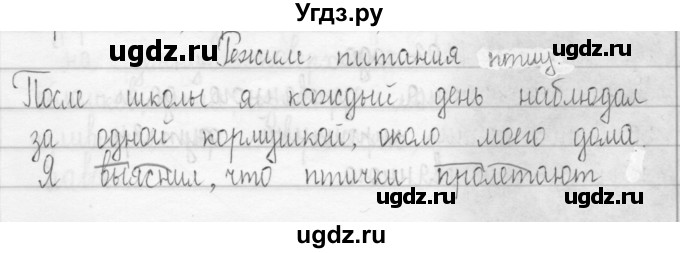 Угдз.ру
ugdz.ru ugdz.ru
Режим питания птиц.
После школы я каждый день наблюдал
за одной кормушкой, около моего дома.
Я выяснил, что птички пролетают
ugdz.ru ugdz.ru
ugdz.ru